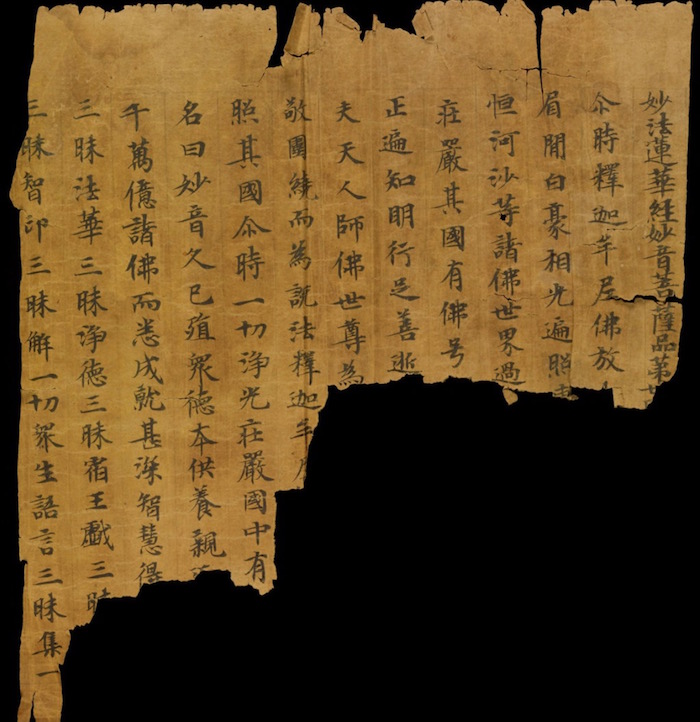 妙法蓮華経妙音菩薩品第廿
尒時釋迦牟尼佛放
眉間白豪相光遍照
恒河沙等諸佛世界過
莊嚴其國有佛号
正遍知明行足善逝
夫天人師佛世尊為
敬圍繞而為說法釋迦牟尼
照其國尒時一切淨光莊嚴國中有
名曰妙音久已殖衆德本供養親
千萬億諸佛而悉成就甚深智慧得
三昧法華三昧淨德三昧宿王戲三昧
三昧智印三昧解一切衆生語言三昧集一